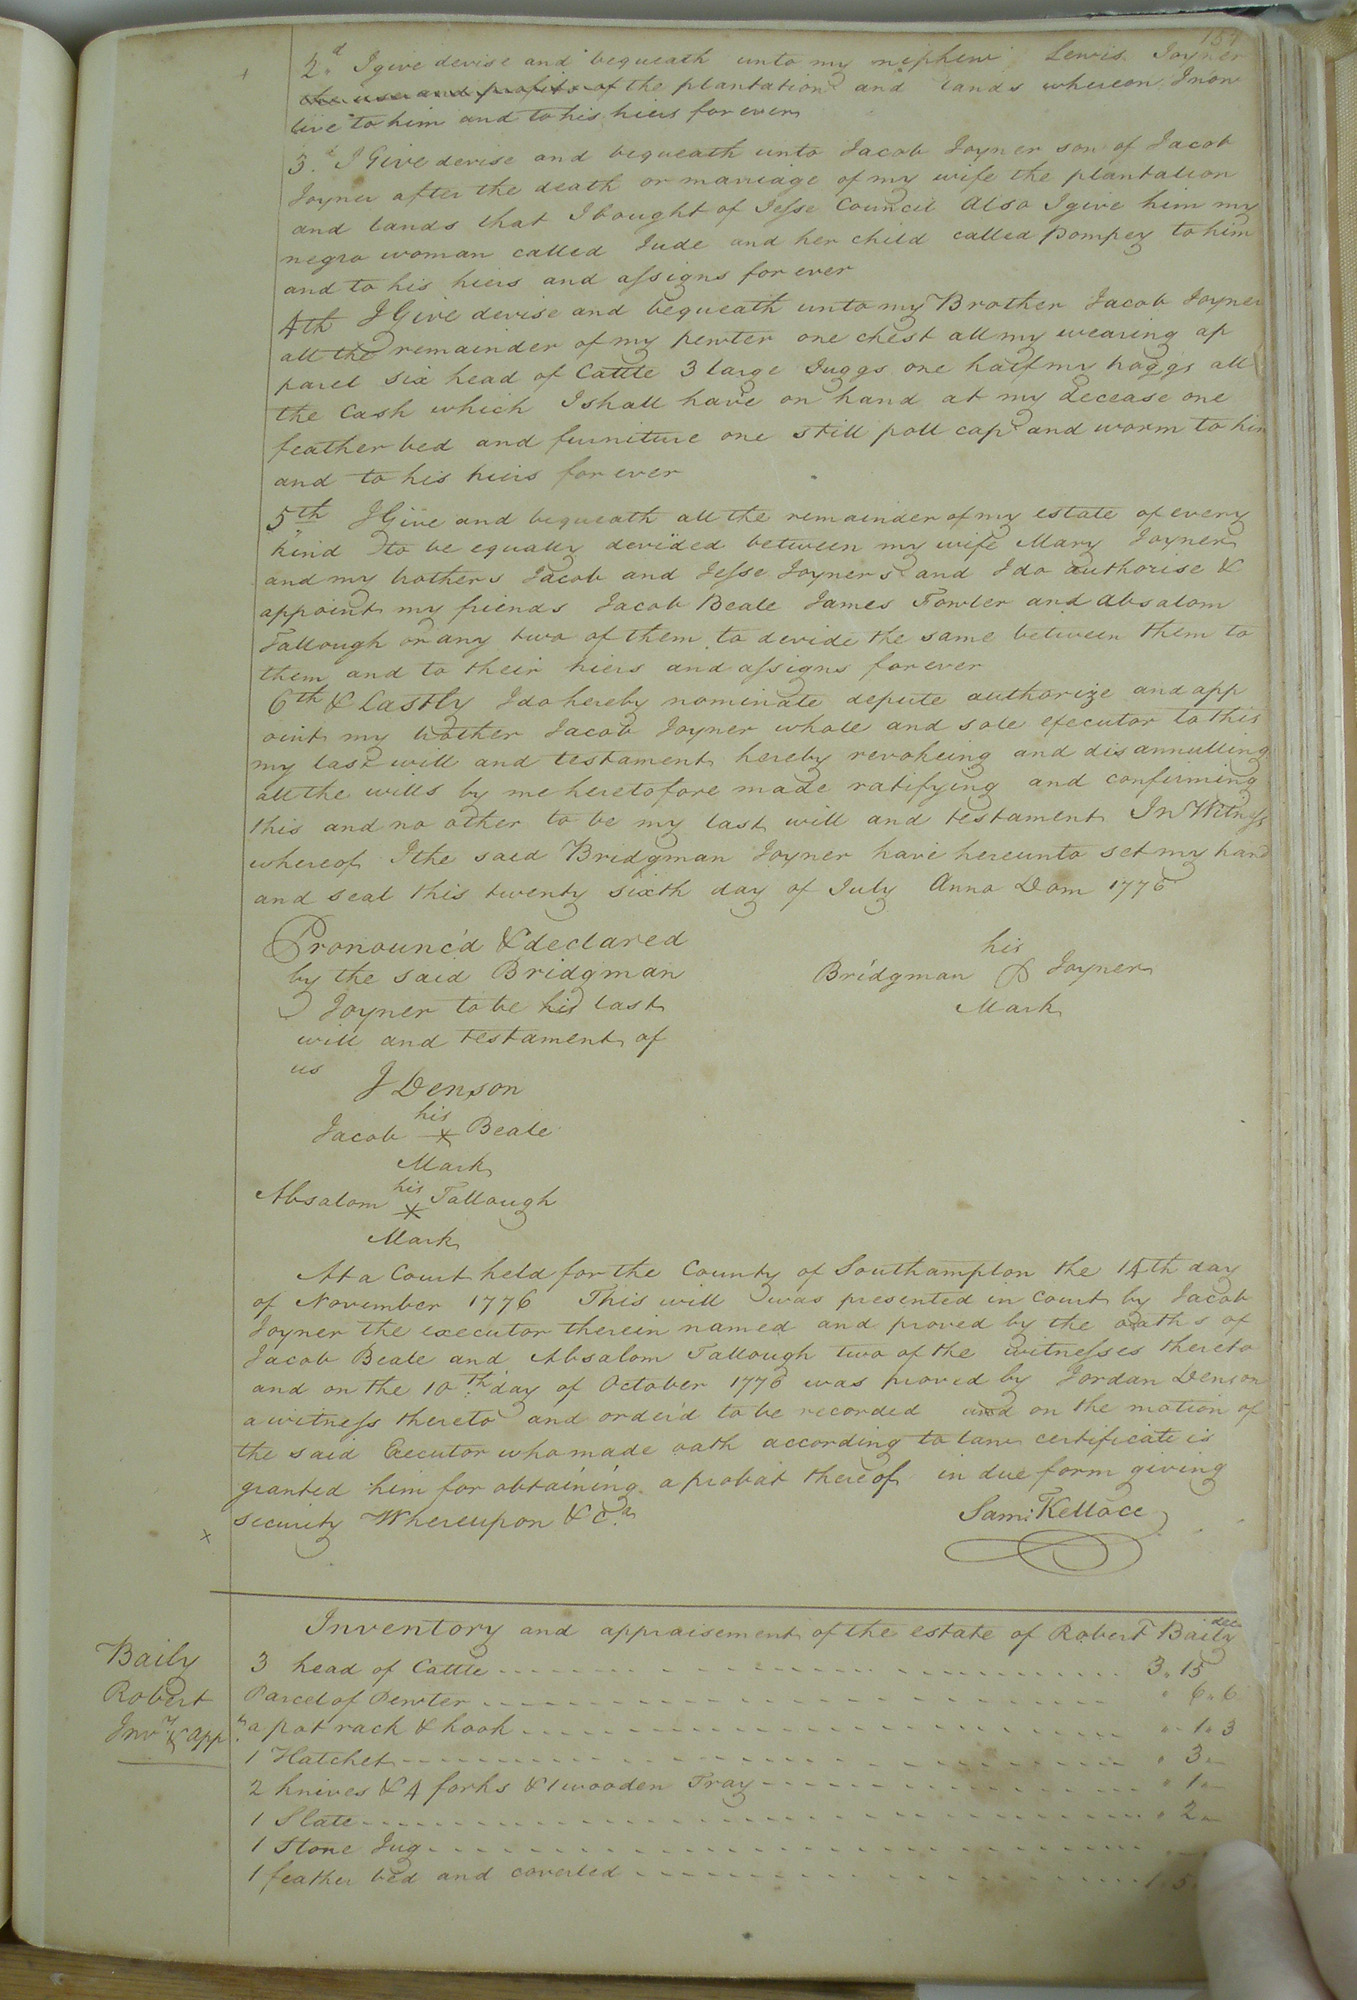 2.d I give devise and bequeath unto my nephew Lewis Joyner
the use and profits of the plantation and lands whereon I now
live to him and to his hiers for ever
3.d I Give devise and bequeath unto Jacob Joyner son of Jacob
Joyner after the death or marriage of my wife the plantation
and lands that I bought of Jesse Council Also I give him my
negro woman called Jude and her child called Pompey to him
and to his hiers and assigns for ever
4th I Give devise and bequeath unto my Brother Jacob Joyner
all the remainder of my pewter one chest all my wearing ap
parel six head of Cattle 3 large Juggs one half my hoggs all
the Cash which I shall have on hand at my decease one
feather bed and furniture one still poll cap and worm to him
and to his hiers for ever
5th I Give and bequeath all the remainder of my estate of every
kind to be equally devided between my wife Mary Joyner
and my brothers Jacob and Jesse Joyners and I do authorise &
appoint my friends Jacob Beale James Fowler and Absalom
Tallough or any two of them to devide the same between them to
them and to their hiers and assigns forever
6th & Lastly I do hereby nominate depute authorize and app
oint my brother Jacob Joyner whole and sole executor to this
my last will and testament hereby revokeing and disannulling
all the wills by me heretofore made ratifying and confirming
this and no other to be my last will and testament In Witness
whereof I the said Bridgman Joyner have hereunto set my hand
and seal this twenty sixth day of July Anno Dom 1776
Pronounc'd & declared
by the said Bridgman
Joyner to be his last
will and testament of
us
his
Bridgman Joyner
Mark
J Denson
his
Jacob x Beale
Mark
his
Absalom x Tallough
Mark
At a Court held for the County of Southampton the 14th day
of November 1776 This will was presented in Court by Jacob
Joyner the executor therein named and proved by the oaths of
Jacob Beale and Absalom Tallough two of the witnesses thereto
and on the 10th day of October 1776 was proved by Jordan Denson
a witness thereto and order'd to be recorded and on the motion of
the said Executor who made oath according to law certificate is
granted him for obtaining a probat thereof in due form giving
security Whereupon &c.a
Sam: Kelloce
Inventory and appraisement of the estate of Robert Baily decd
Baily
Robert
Invy & appt.
3 head of Cattle 3 " 15
Parcel of Pewter " 6 " 6
a pot rack & hook " 1 " 3
1 Hatchet " 3 "
2 knives & 4 forks & 1 wooden Tray " 1 "
1 Slate " 2 "
1 Stone Jug
1 feather bed and coverled 1 " 5